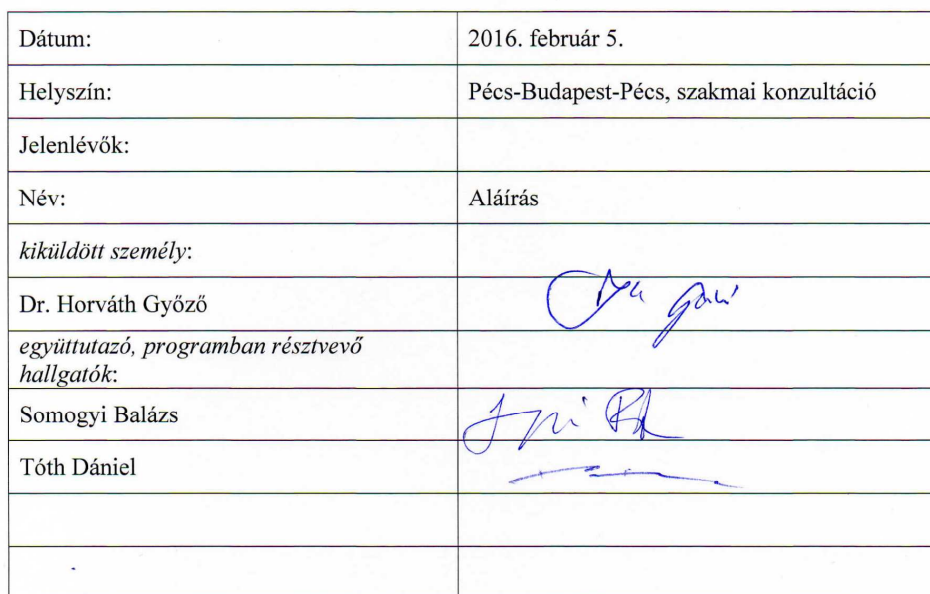 Dátum: 2016. február 5.
Helyszín: Pécs-Budapest-Pécs, szakmai konzultáció
Jelenlévők:
Név: Aláírás
kiküldött személy:
Dr. Horváth Győző
együttutazó, programban résztvevő
hallgatók:
Somogyi Balázs
Tóth Dániel